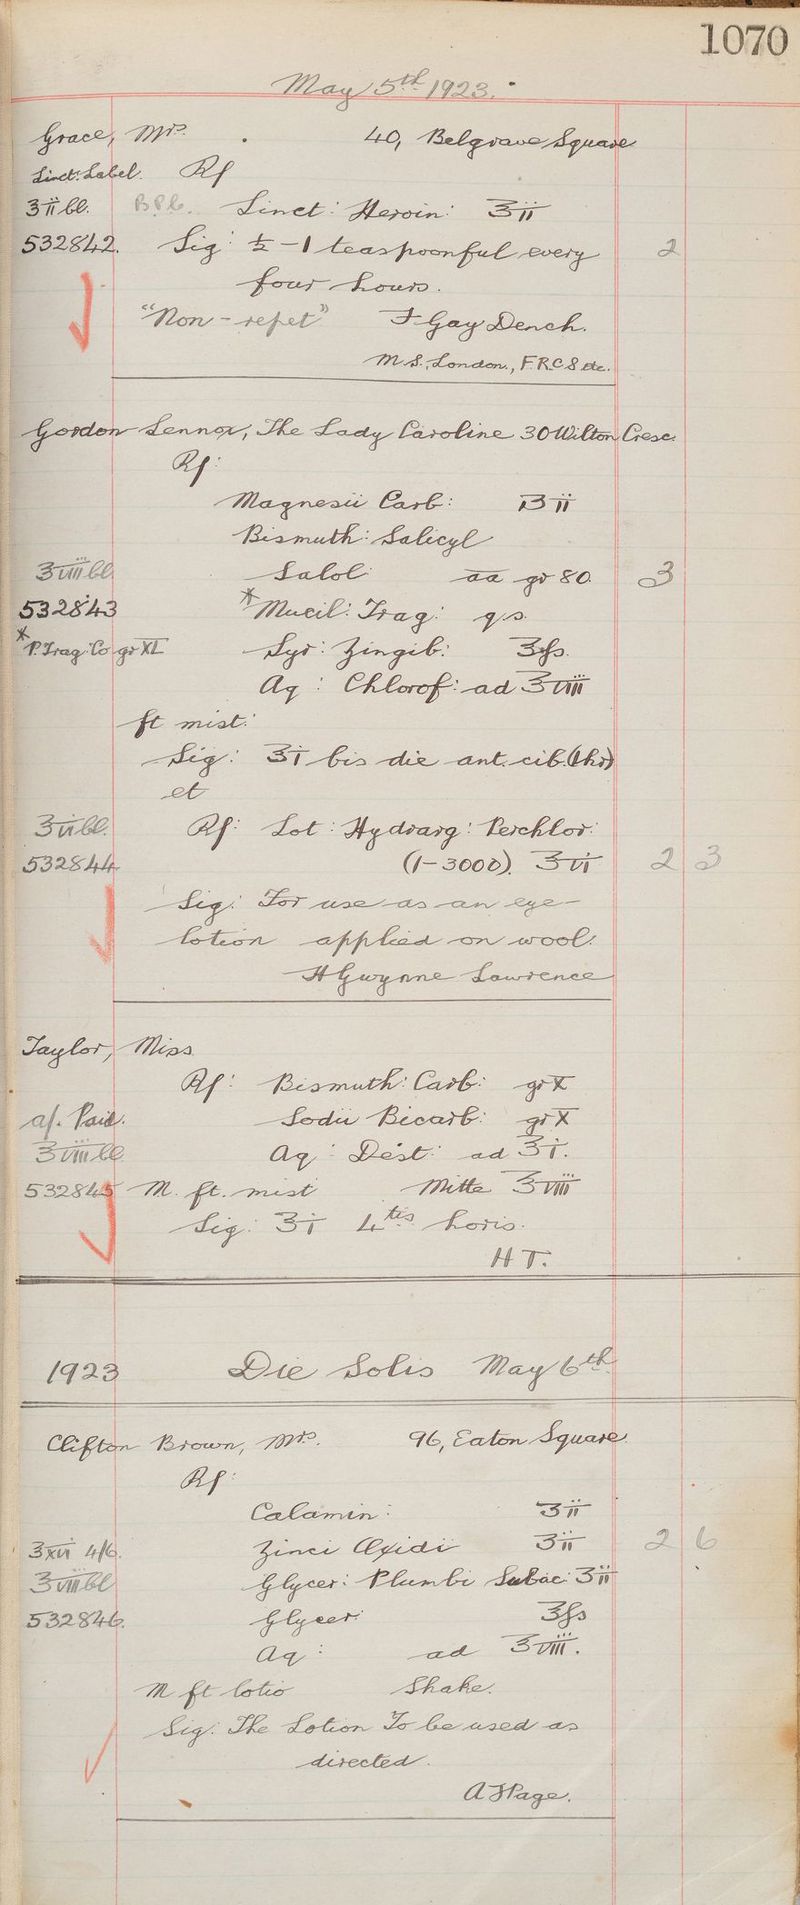 1070
May 5th 1923.
Grace, Mrs. 40, Belgrave Square
Linct: Label. Rx
℥ii bl. B.P.C. Linct: Heroin: ℥ii
532842. Sig: ½ - 1 teaspoonful every 2
four hours.
"Non - repet" F Gay Dench.
M.S., London., F.R.C.S etc.
Gordon Lennox, The Lady Caroline 30 Wilton Cresc.
Rx:
Magnesii Carb: ʒii
Bismuth: Salicyl
℥viii bl. Salol: aa gr 80. 3
532843 *Mucil: Trag: qs.
*P. Trag: Co gr XL Syr: Zingib: ℥fs.
Aq: Chlorof: ad ℥viii
ft mist:
Sig: ℥i bis die ant. cib. (1hr)
et
℥vi bl. Rx: Lot: Hydrarg: Perchlor:
532844 (1-3000). ℥vi 2 3
Sig: For use as an eye-
lotion applied on wool.
H Gwynne Lawrence
Taylor, Miss
Rx: Bismuth: Carb: gr X
a/. Paid. Sodii Bicarb: gr X
℥viii bl Aq: Dest: ad ℥i.
532845 M. ft. mist Mitte ℥viii
Sig: ℥i 4tis horis.
H T.
1923 Die Solis May 6th
Clifton Brown, Mrs. 96, Eaton Square.
Rx:
Calamin: ʒii
℥xvi 4/6. Zinci Oxidi ʒii 2 6
℥viii bl Glycer: Plumbi Subac: ʒii
532846. Glycer: ℥fs
Aq: ad ℥viii.
M ft lotio Shake.
Sig: The Lotion To be used as
directed.
A F Page.